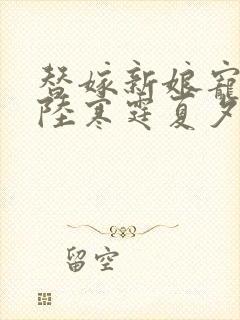 替嫁新娘寵
陸寒霆夏夕
留空